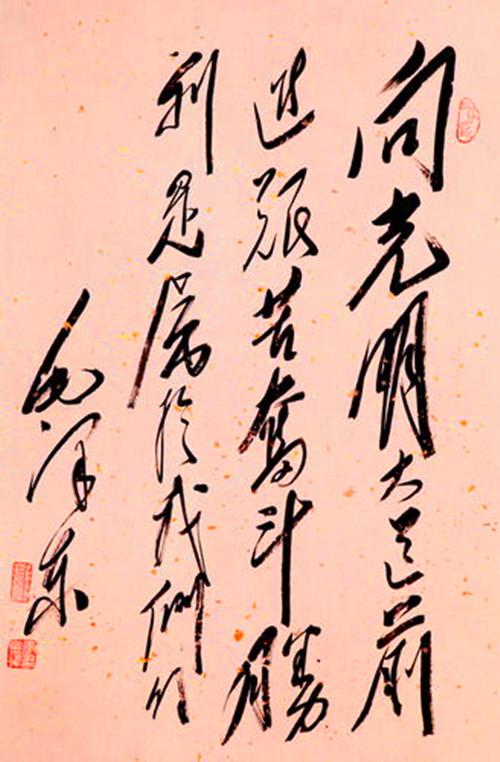 向光明大道前
进艰苦奋斗勝
利是属於我们的
毛泽东